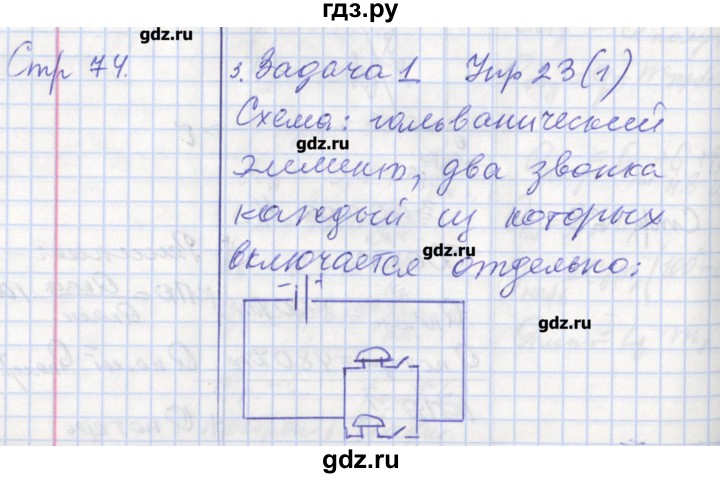 гдз.ру
gdz.ru
Стр 74.
3. Задача 1 Упр 23 (1)
Схема: гальванический
gdz.ru
элемент, два звонка
каждый из которых
gdz.ru
включается отдельно:
- +
gdz.ru
gdz.ru
gdz.ru